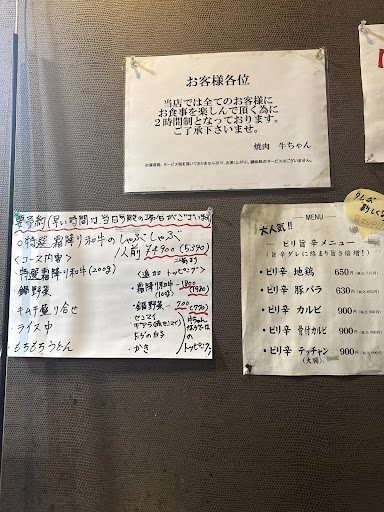 お客様各位
当店では全てのお客様に
お食事を楽しんで頂く為に
2時間制となっております。
ご了承下さいませ。
焼肉 牛ちゃん
要予約(早い時間は当日
◎特選霜降り和牛のしゃぶしゃぶ
1人前 ¥4900 (5,390)
〈コース内容〉
・特選霜降り和牛(200g)
・鍋野菜
・キムチ盛り合せ
・ライス中
・もちもちうどん
〈追加トッピング〉
・霜降り和牛 - 1800
(1980)
・鍋野菜 - 700 (770)
・センマイ
・かき
トッピング
大人気!!
MENU
ピリ旨辛メニュー
(旨辛ダレに絡まり旨さ倍増!)
・ピリ辛 地鶏 650円
・ピリ辛 豚バラ 630円
・ピリ辛 カルビ 900円
・ピリ辛 骨付カルビ 900円
・ピリ辛 テッチャン 900円
(大腸)